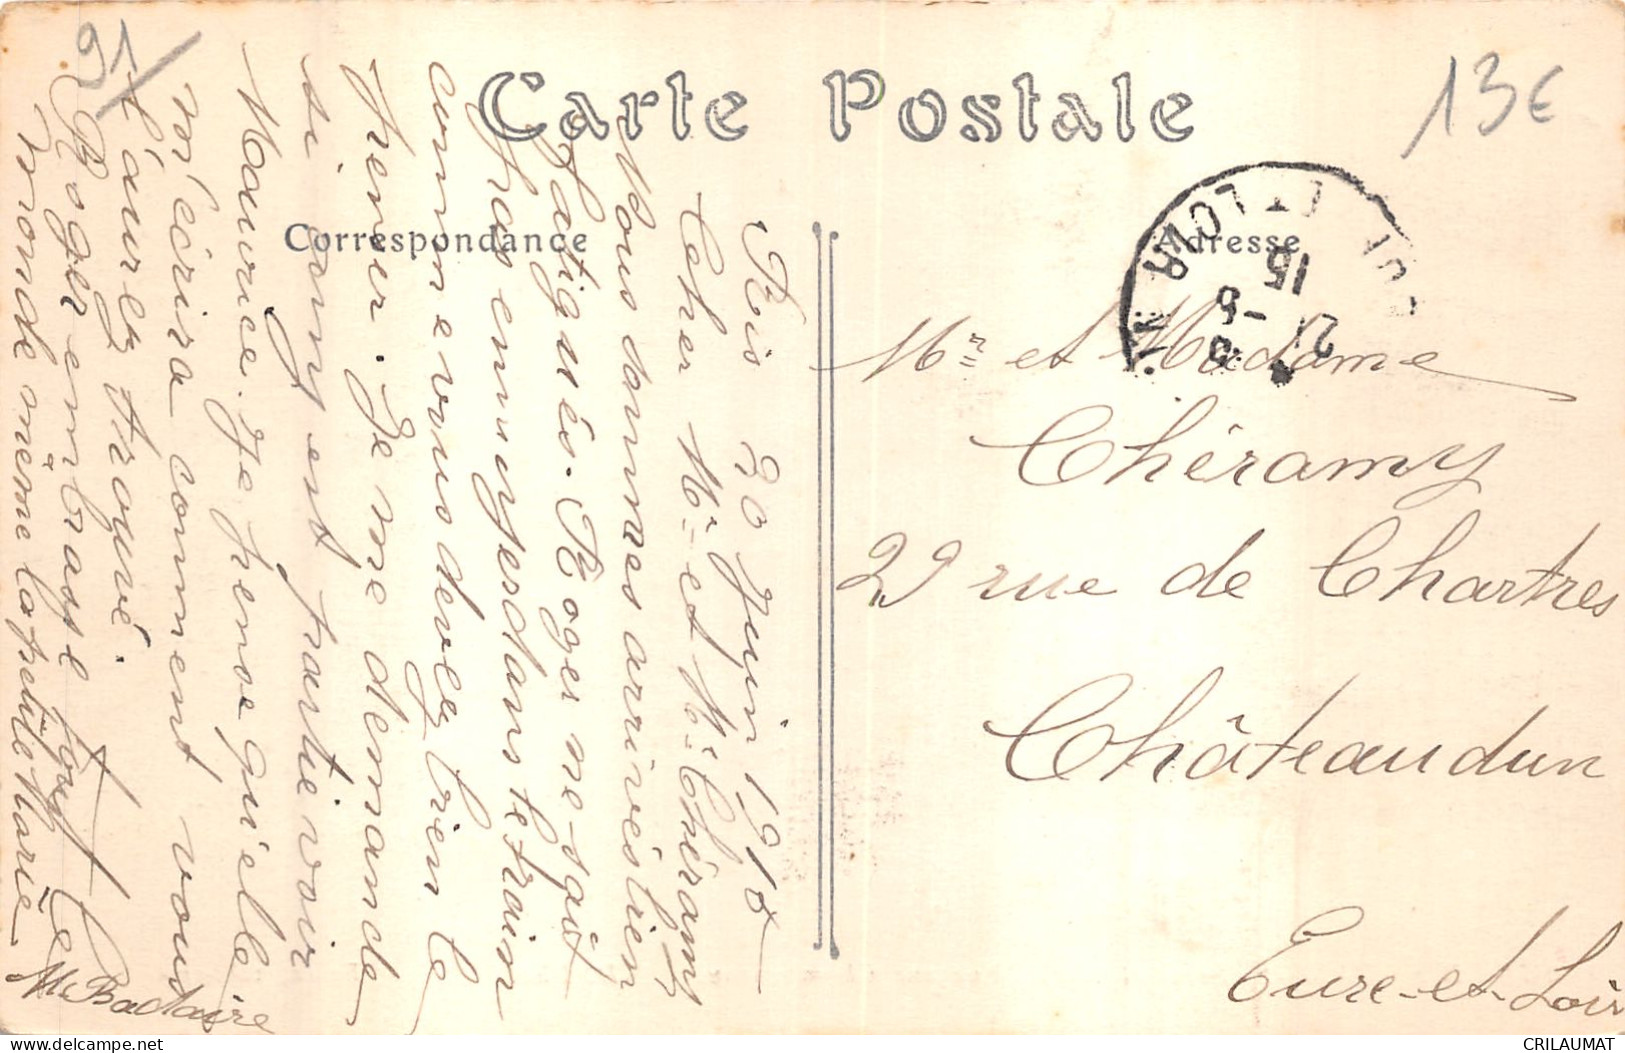 91
13€
Carte Postale
Correspondance
Adresse
ET LOIR
15
-6
21
Ris 20 juin 1918
Cher Mr et Me Chéramy
Nous sommes arrivés bien
fatigués. Roger ne sait
pas ennuyer dans le train
comme vous devez bien le
penser. Je me demande
si any est partie voir
Maurice. Je pense qu'elle
m'écrira comment vous
l'aurez trouvé.
Roger embrasse tout le
monde même la petite Marie
M Bactaire
Mr et Madame
Chéramy
29 rue de Chartres
Châteaudun
Eure-et-Loir
CRILAUMAT